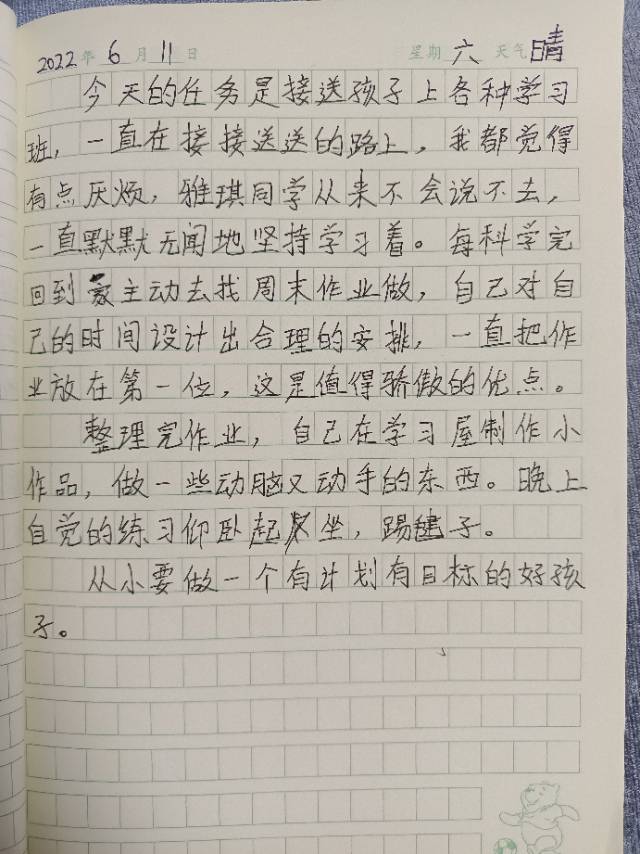 2022年6月11日 星期六 天气晴
今天的任务是接送孩子上各种学习
班，一直在接接送送的路上，我都觉得
有点厌烦，雅琪同学从来不会说不去，
一直默默无闻地坚持学习着。每科学完
回到家主动去找周末作业做，自己对自
己的时间设计出合理的安排，一直把作
业放在第一位，这是值得骄傲的优点。
整理完作业，自己在学习屋制作小
作品，做一些动脑又动手的东西。晚上
自觉的练习仰卧起坐，踢毽子。
从小要做一个有计划有目标的好孩
子。